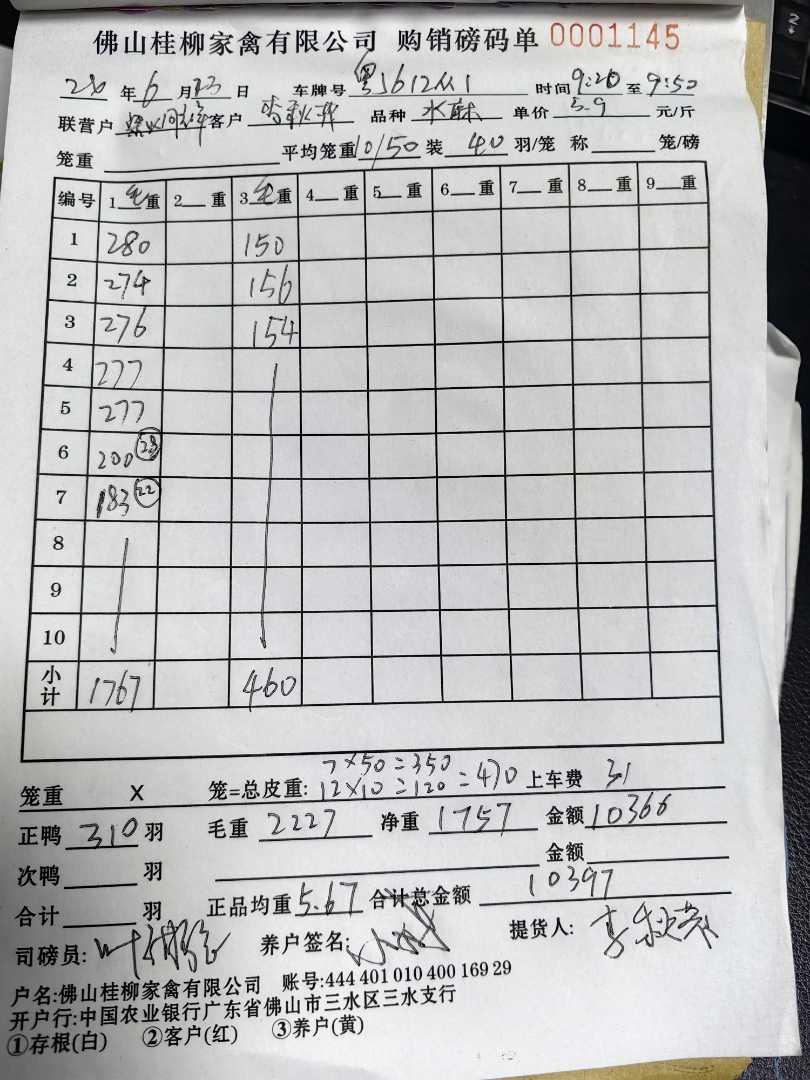 佛山桂柳家禽有限公司 购销磅码单 0001145
年 6 月 23 日 车牌号 时间 9:20 至 9:50
联营户 客户 品种 水 单价 5.9 元/斤
笼重 平均笼重 10/50 装 40 羽/笼 称 笼/磅
编号 1 毛 重 2 重 3 毛 重 4 重 5 重 6 重 7 重 8 重 9 重
1 280 150
2 274 156
3 276 154
4 277
5 277
6 200 23
7 183 22
8
9
10
小计 1767 460
7×50=350
笼重 X 笼=总皮重: 12×10=120 =470 上车费 31
正鸭 310 羽 毛重 2227 净重 1757 金额 10366
次鸭 羽 金额
合计 羽 正品均重 5.67 合计总金额 10397
司磅员: 叶 养户签名: 提货人:
户名:佛山桂柳家禽有限公司 账号:444 401 010 400 169 29
开户行:中国农业银行广东省佛山市三水区三水支行
①存根(白) ②客户(红) ③养户(黄)